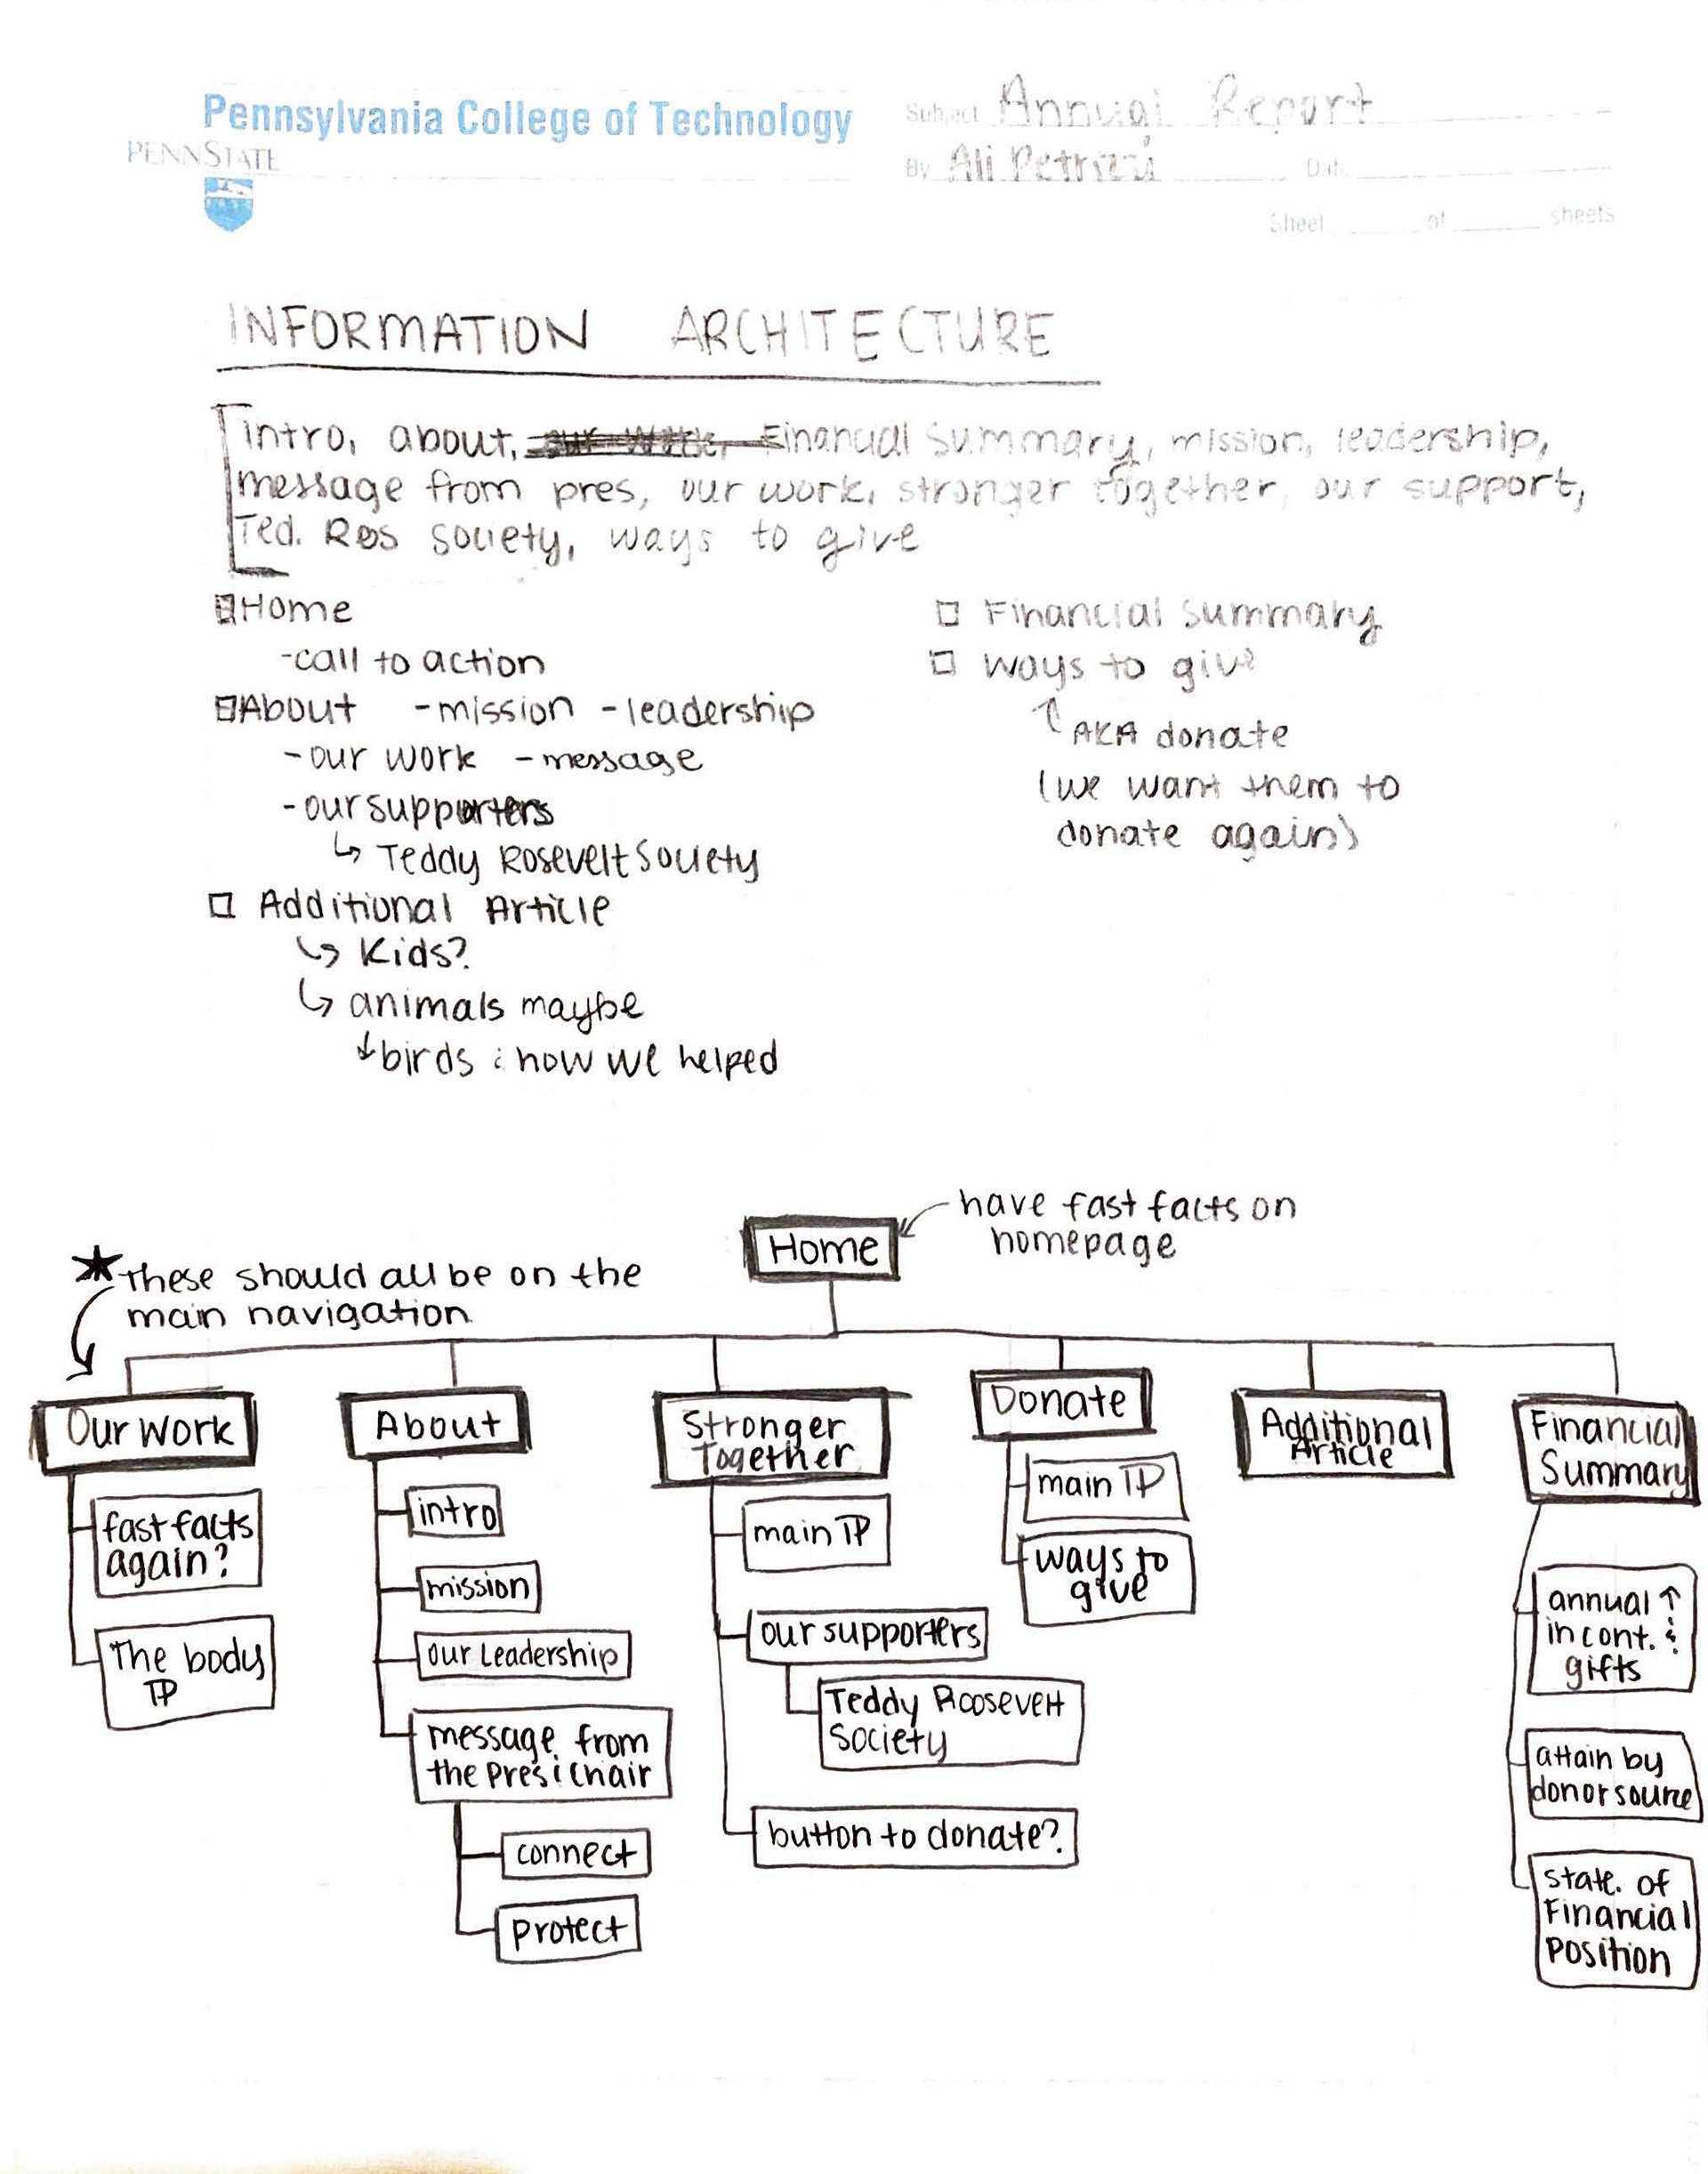 Pennsylvania College of Technology
PENNSTATE
Subject Annual Report
By Ali Petrizzi Date
Sheet of sheets
INFORMATION ARCHITECTURE
intro, about, Financial Summary, mission, leadership,
message from pres, our work, stronger together, our support,
Ted. Ros society, ways to give
Home
-call to action
About -mission -leadership
-our work -message
-our supporters
↳ Teddy Rosevelt Society
Additional Article
↳ Kids?
↳ animals maybe
↓birds : how we helped
Financial Summary
ways to give
↑ AKA donate
(we want them to
donate again)
have fast facts on
homepage
Home
*These should all be on the
main navigation
Our Work
fast facts
again?
The body
TP
About
intro
mission
our Leadership
message from
the pres & chair
connect
protect
Stronger
Together
main TP
our supporters
Teddy Roosevelt
Society
button to donate?
Donate
main TP
ways to
give
Additional
Article
Financial
Summary
annual ↑
in cont. &
gifts
attain by
donor source
state. of
Financial
Position